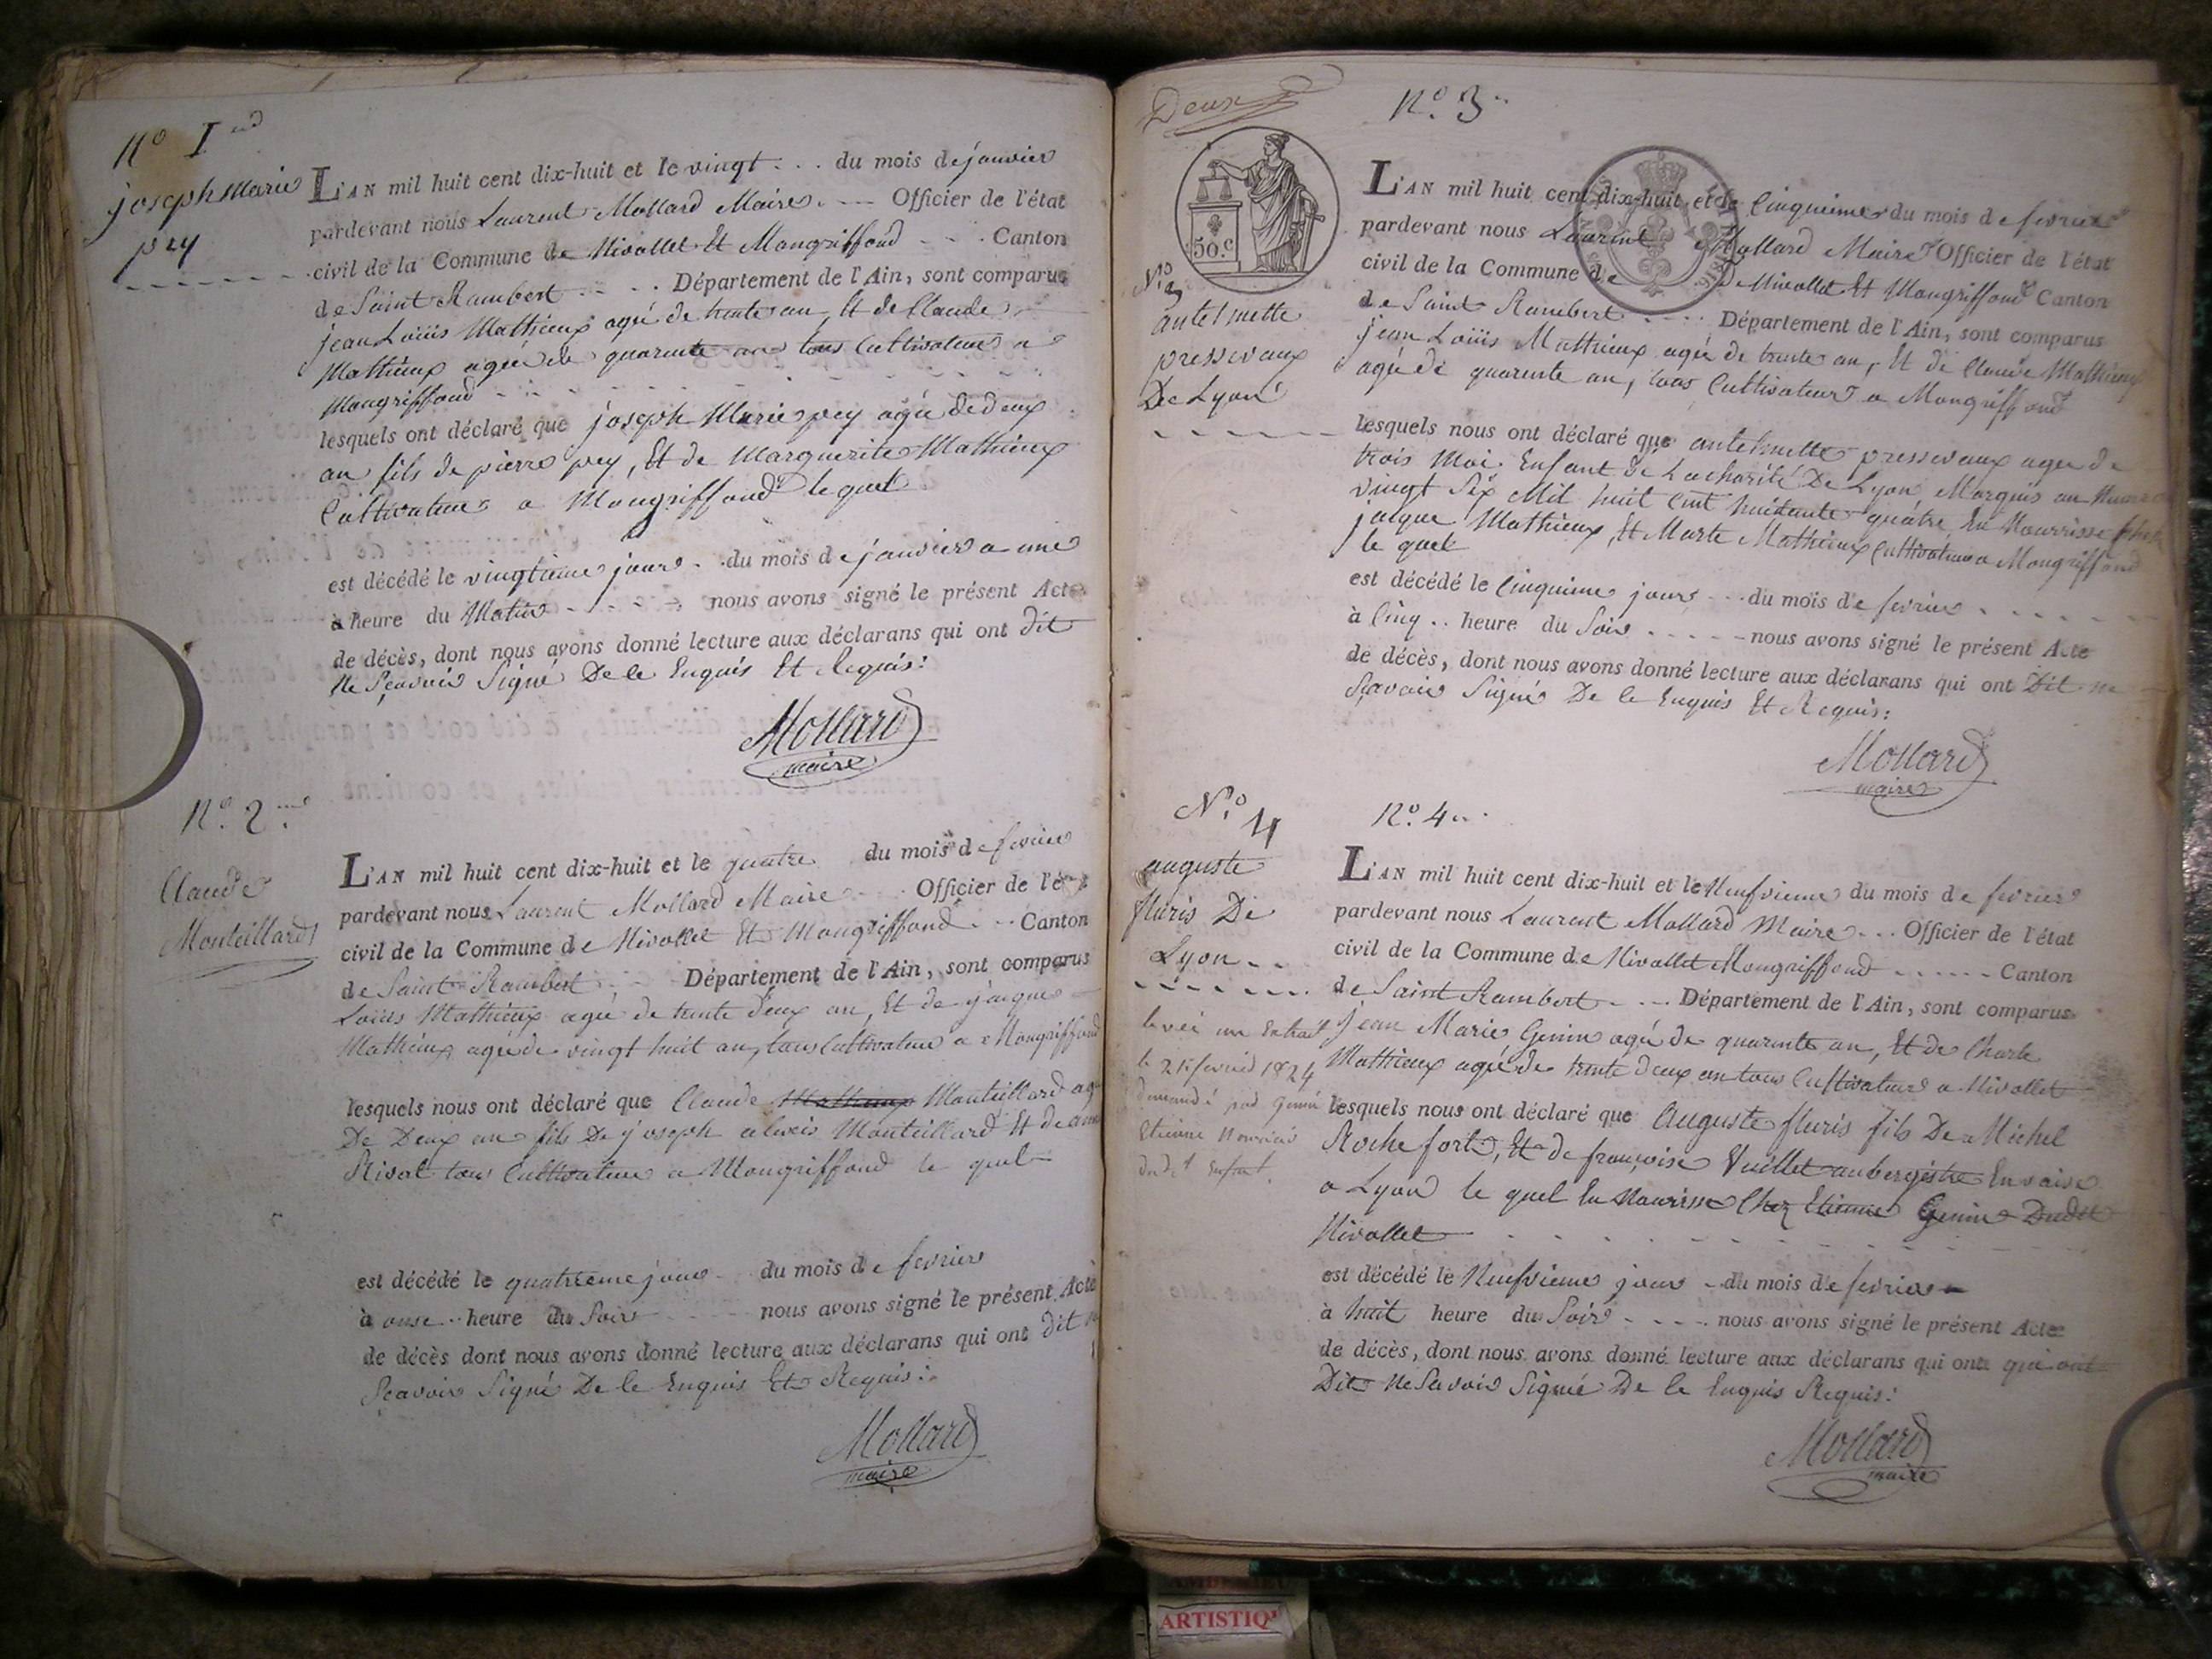 N.o I.nd
joseph Marie
pey
L'AN mil huit cent dix-huit et le vingt du mois de janvier
pardevant nous Laurent Mollard Maire Officier de l'état
civil de la Commune de Nivollet Et Mongriffond Canton
de Saint Rambert Département de l'Ain, sont comparus
jean Louiis Mathieux agée de trente an, Et de Claude
Mathieux agée de quarente an tous Cultivateur a
Mongriffond
lesquels ont déclaré que joseph Marie pey agée de deux
an fils de pierre pey, Et de Marguerite Mathieux
Cultivateur a Mongriffond le quel
est décédé le vingtieme jour du mois de janvier a une
à heure du Matin nous avons signé le présent Acte
de décès, dont nous avons donné lecture aux déclarans qui ont dit
Ne Sçavoir Signé De le Enquis Et Requis:
Mollard
maire
N.o 2
Claude
Monteillard
L'AN mil huit cent dix-huit et le quatre du mois de fevrier
pardevant nous Laurent Mollard Maire Officier de l'état
civil de la Commune de Nivollet Et Mongriffond Canton
de Saint Rambert Département de l'Ain, sont comparus
Louiis Mathieux agée de trente deux an, Et de jaique
Mathieux agée de vingt huit an, tous Cultivateur a Mongriffond
lesquels nous ont déclaré que Claude Mathieux Monteillard
De Deux an fils De joseph Monteillard Et de
tous Cultivateur a Mongriffond le quel
est décédé le quatrieme jour du mois de fevrier
à onse heure du Soir nous avons signé le présent Acte
de décès dont nous avons donné lecture aux déclarans qui ont dit
Sçavoir Signé De le Enquis Et Requis:
Mollard
maire
Deux
50.c
N.o 3
N.o 3
antelmette
pressevaux
De Lyon
L'AN mil huit cent dix-huit et le Cinquieme du mois de fevrier
pardevant nous Laurent Mollard Maire Officier de l'état
civil de la Commune de De Nivollet Et Mongriffond Canton
de Saint Rambert Département de l'Ain, sont comparus
jean Louiis Mathieux agée de trente an, Et de Claude Mathieux
agée de quarente an, tous Cultivateur a Mongriffond
lesquels nous ont déclaré que antelmette pressevaux agée de
trois Moi Enfant de La charité De Lyon Marquis au
vingt Six Mil huit Cent huitante quatre En Nourrisse
jaique Mathieux, Et Marte Mathieux Cultivateur a Mongriffond
le quel
est décédé le Cinquieme jour du mois de fevrier
à Cinq heure du Soir nous avons signé le présent Acte
de décès, dont nous avons donné lecture aux déclarans qui ont Dit ne
Sçavoir Signé De le Enquis Et Requis:
Mollard
maire
N.o 4
N.o 4
auguste
fluris De
Lyon
levée un Extrait
le fevrier 1824
demandé par Genin
Etienne Nourricier
dudit Enfant.
L'AN mil huit cent dix-huit et le Neufvieme du mois de fevrier
pardevant nous Laurent Mollard Maire Officier de l'état
civil de la Commune de Nivollet Mongriffond Canton
de Saint Rambert Département de l'Ain, sont comparus
Jean Marie Genin agée de quarente an, Et de Charle
Mathieux agée de trente deux an tous Cultivateur a Nivollet
lesquels nous ont déclaré que Auguste fluris fils De Michel
Rochefort, Et de françoise Vuillet aubergiste Envaise
a Lyon le quel En Nourrisse Chez Etienne Genin Dudit
Nivollet
est décédé le Neufvieme jour du mois de fevrier
à huit heure du Soir nous avons signé le présent Acte
de décès, dont nous avons donné lecture aux déclarans qui ont qui ont
Dit Ne Savoir Signé De le Enquis Requis:
Mollard
maire
ARTISTIQ